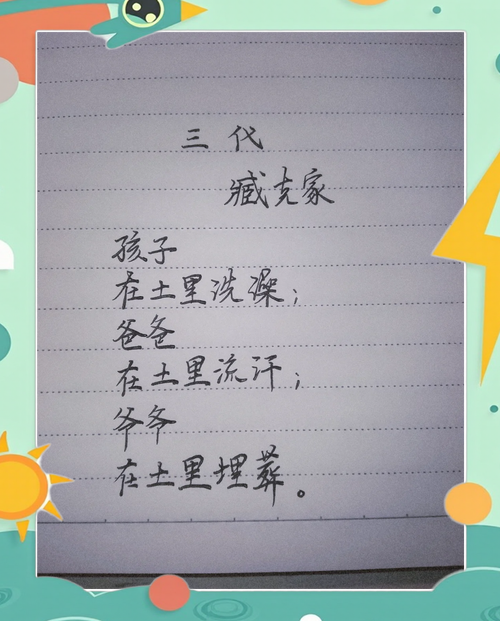 三代
臧克家
孩子
在土里洗澡；
爸爸
在土里流汗；
爷爷
在土里埋葬。